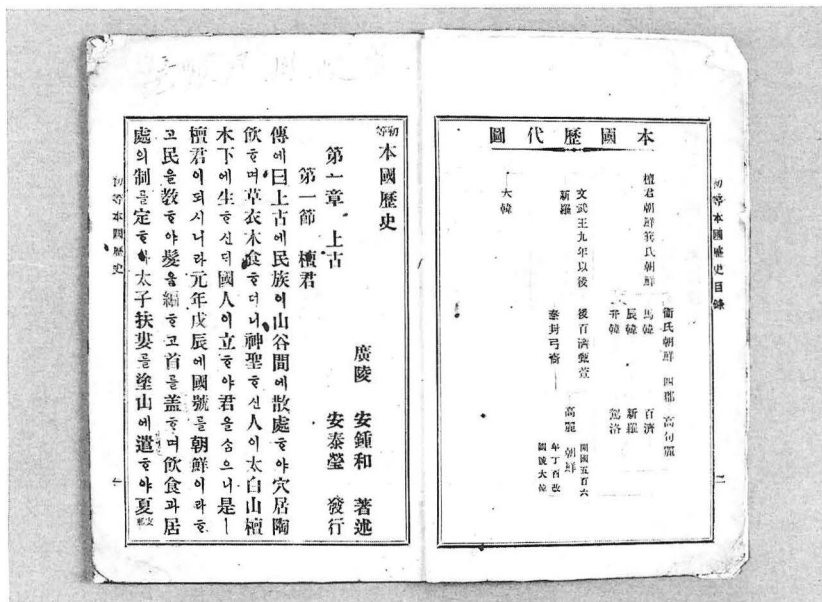 初等本國歷史目錄
本國歷代圖
檀君朝鮮 箕氏朝鮮
衛氏朝鮮 四郡 高句麗
馬韓 百濟
辰韓 新羅
弁韓 駕洛
文武王九年以後
新羅
後百濟甄萱
泰封弓裔
高麗 朝鮮
開國五百六
年丁酉改
國號大韓
大韓
二
初等本國歷史
廣陵 安鍾和 著述
安泰瑩 發行
第一章 上古
第一節 檀君
傳에曰上古에民族이山谷間에散處ᄒᆞ야穴居陶
飮ᄒᆞ며草衣木食ᄒᆞ더니神聖ᄒᆞ신人이太白山檀
木下에生ᄒᆞ신ᄃᆡ國人이立ᄒᆞ야君을合으니是ㅣ
檀君이되시니라元年戊辰에國號를朝鮮이라ᄒᆞ
고民을敎ᄒᆞ야髮을編ᄒᆞ고首를盖ᄒᆞ며飮食과居
處의制를定ᄒᆞ고太子扶婁를塗山에遣ᄒᆞ야夏支那
初等本國歷史
一